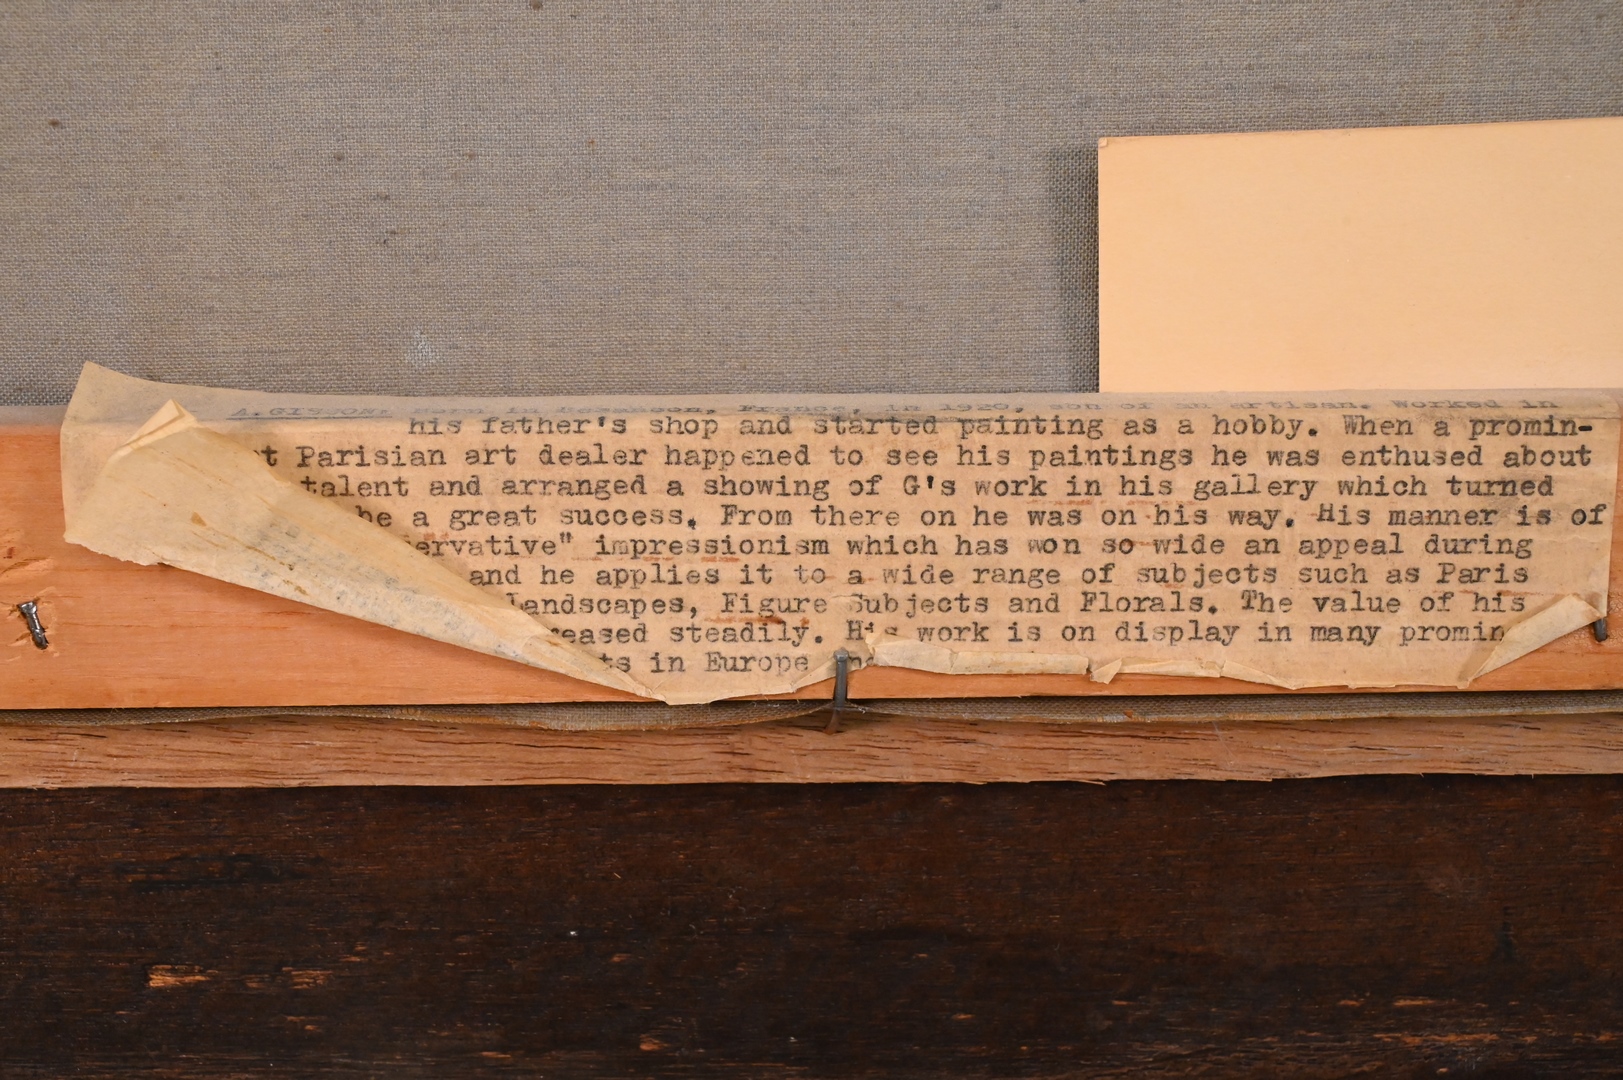 A. GISSON: Born in Besancon, France, in 1920, son of an artisan. Worked in
his father's shop and started painting as a hobby. When a promin-
t Parisian art dealer happened to see his paintings he was enthused about
talent and arranged a showing of G's work in his gallery which turned
be a great success. From there on he was on his way. His manner is of
ervative" impressionism which has won so wide an appeal during
and he applies it to a wide range of subjects such as Paris
Landscapes, Figure Subjects and Florals. The value of his
reased steadily. His work is on display in many promin
ts in Europe